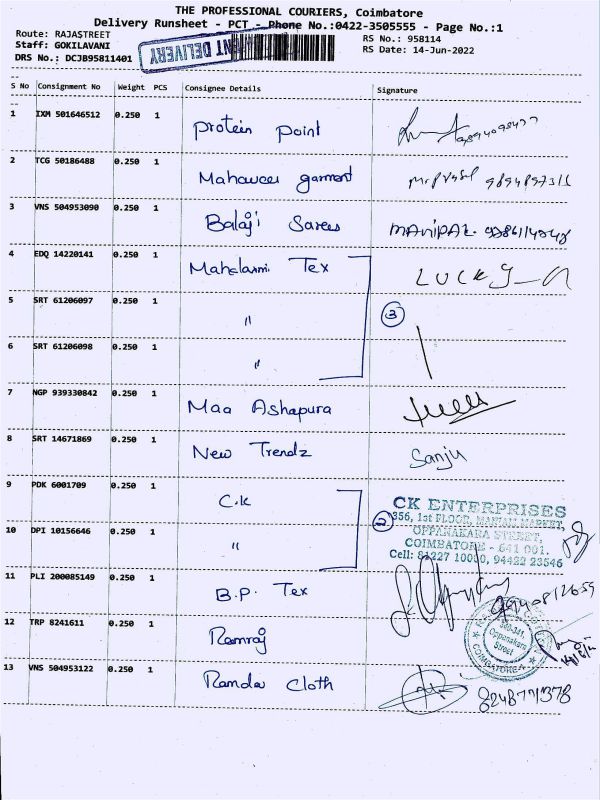 THE PROFESSIONAL COURIERS, Coimbatore
Delivery Runsheet - PCT - Phone No.:0422-3505555 - Page No.:1
Route: RAJASTREET
RS No.: 958114
Staff: GOKILAVANI
RS Date: 14-Jun-2022
DRS No.: DCJB95811401
DELIVERY
S No Consignment No Weight PCS Consignee Details Signature
1 IXM 501646512 0.250 1 Protein Point
2 TCG 50186488 0.250 1 garment
3 VNS 504953090 0.250 1 Balaji Sarees MANIPAL
4 EDQ 14220141 0.250 1 Mahalaxmi Tex LUCKY
5 SRT 61206097 0.250 1 " 3
6 SRT 61206098 0.250 1 "
7 NGP 939330842 0.250 1 Maa Ashapura
8 SRT 14671869 0.250 1 New Trendz Sanju
9 PDK 6001709 0.250 1 C.K
10 DPI 10156646 0.250 1 " 2
CK ENTERPRISES
356, 1st FLOOR, MANIAM MARKET,
OPPANAKARA STREET,
COIMBATORE - 641 001.
Cell: 81227 10000, 94422 23546
11 PLI 200085149 0.250 1 B.P. Tex
12 TRP 8241611 0.250 1 Ramraj
340-341,
Oppanakara
Street
COIMBATORE
13 VNS 504953122 0.250 1 Randa Cloth